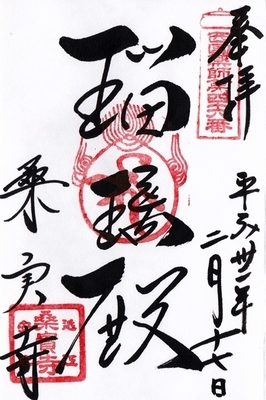 奉拝
西国薬師第四十六番
瑠璃殿
平成廿二年
二月十七日
桑実寺
桑實寺